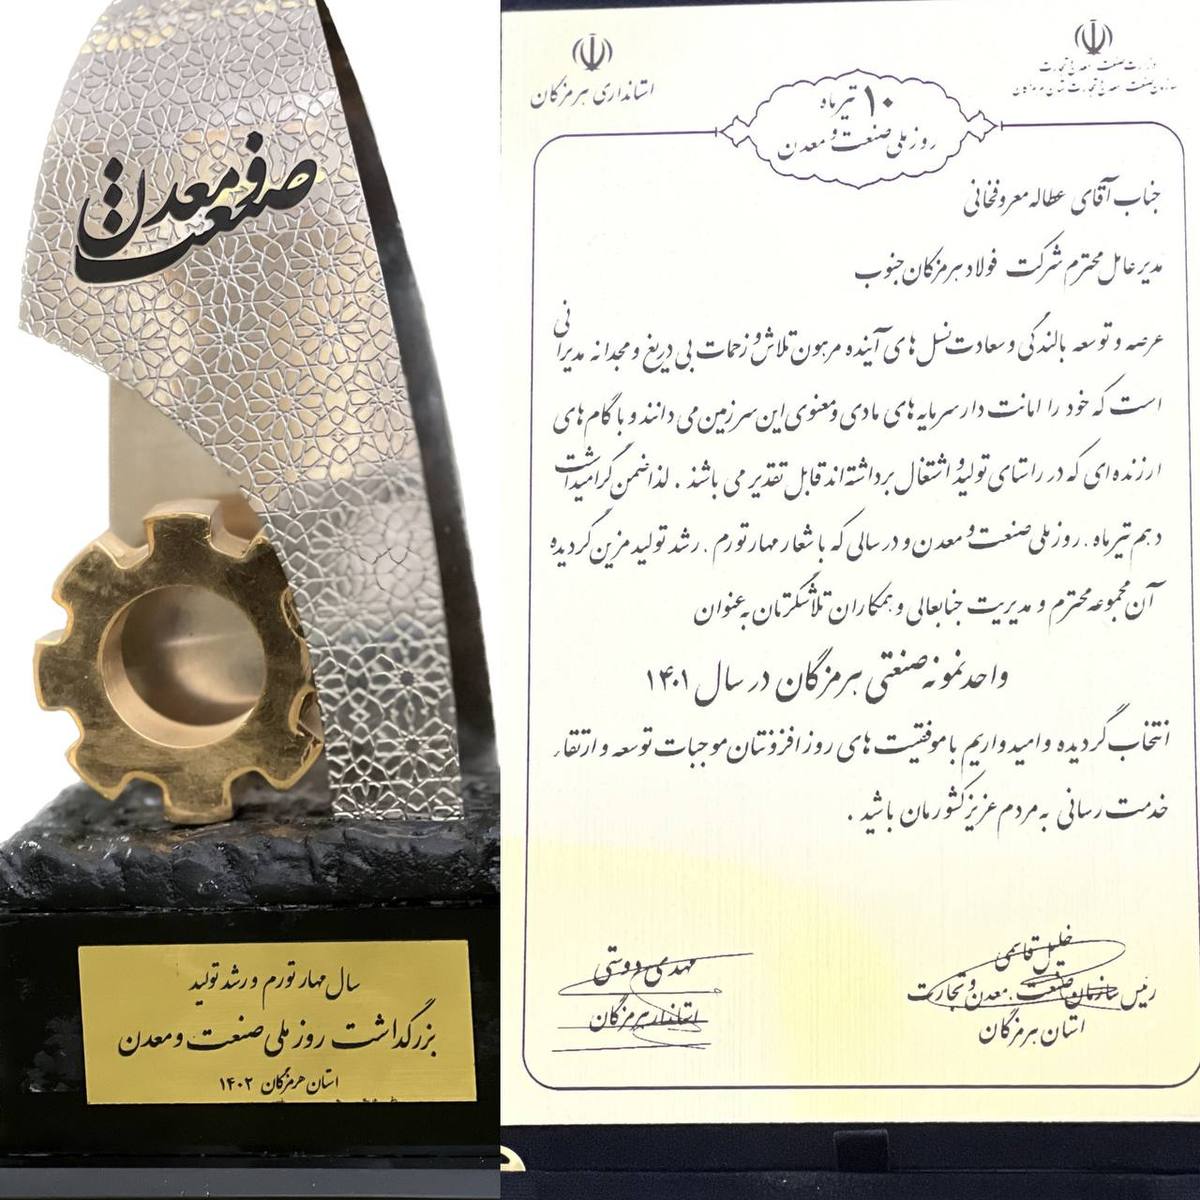 صنعت و معدن
سال مهار تورم و رشد تولید
بزرگداشت روز ملی صنعت و معدن
استان هرمزگان ۱۴۰۲
استانداری هرمزگان
وزارت صنعت، معدن و تجارت
سازمان صنعت، معدن و تجارت استان هرمزگان
۱۰ تیر ماه
روز ملی صنعت و معدن
جناب آقای عطااله معروفخانی
مدیر عامل محترم شرکت فولاد هرمزگان جنوب
عرصه و توسعه بالندگی و سعادت نسل های آینده مرهون تلاش و زحمات بی دریغ و مجدانه مدیرانی
است که خود را امانت دار سرمایه های مادی و معنوی این سرزمین می دانند و با گام های
ارزنده ای که در راستای تولید و اشتغال برداشته اند قابل تقدیر می باشند . لذا ضمن گرامیداشت
دهم تیر ماه . روز ملی صنعت و معدن و در سالی که با شعار مهار تورم . رشد تولید مزین گردیده
آن مجموعه محترم و مدیریت جنابعالی و همکاران تلاشگرتان به عنوان
واحد نمونه صنعتی هرمزگان در سال ۱۴۰۱
انتخاب گردیده و امیدواریم با موفقیت های روز افزونتان موجبات توسعه و ارتقاء
خدمت رسانی به مردم عزیز کشورمان باشید .
خلیل قاسمی
رئیس سازمان صنعت، معدن و تجارت
استان هرمزگان
مهدی دوستی
استاندار هرمزگان